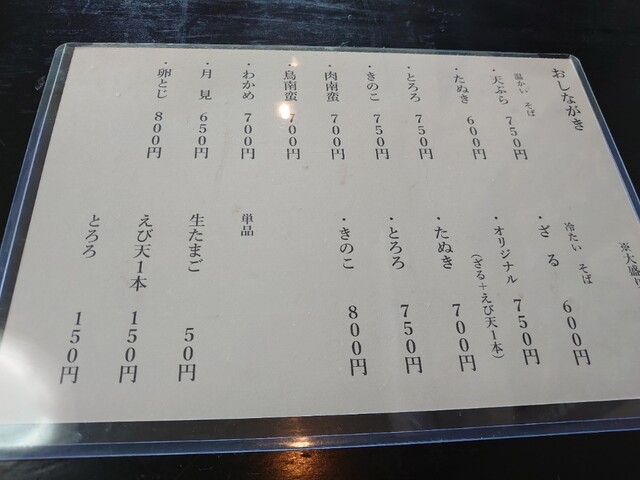 おしながき
温かい そば
・天ぷら 750円
・たぬき 600円
・とろろ 750円
・きのこ 750円
・肉南蛮 700円
・鳥南蛮 700円
・わかめ 700円
・月見 650円
・卵とじ 800円
※大盛り
冷たい そば
・ざる 600円
・オリジナル 750円
(ざる+えび天1本)
・たぬき 700円
・とろろ 750円
・きのこ 800円
単品
生たまご 50円
えび天1本 150円
とろろ 150円